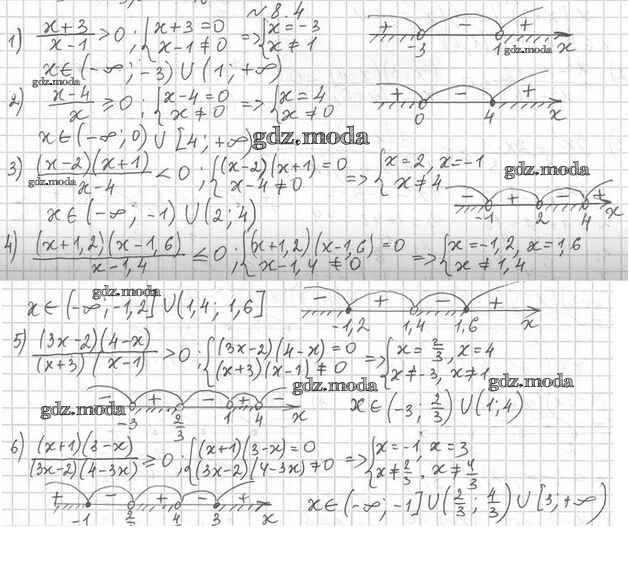 № 8.4
1) (x+3)/(x-1) > 0 ; { x+3 = 0 ; x-1 ≠ 0 => { x = -3 ; x ≠ 1
+ - + -3 1 x
gdz.moda
x ∈ (-∞; -3) ∪ (1; +∞)
gdz.moda
2) (x-4)/x ≥ 0 ; { x-4 = 0 ; x ≠ 0 => { x = 4 ; x ≠ 0
+ - + 0 4 x
x ∈ (-∞; 0) ∪ [4; +∞)
gdz.moda
3) (x-2)(x+1)/(x-4) < 0 ; { (x-2)(x+1) = 0 ; x-4 ≠ 0 => { x = 2, x = -1 ; x ≠ 4
gdz.moda
gdz.moda
- + - + -1 2 4 x
x ∈ (-∞; -1) ∪ (2; 4)
4) (x+1,2)(x-1,6)/(x-1,4) ≤ 0 ; { (x+1,2)(x-1,6) = 0 ; x-1,4 ≠ 0 => { x = -1,2, x = 1,6 ; x ≠ 1,4
gdz.moda
x ∈ (-∞; -1,2] ∪ (1,4; 1,6]
- + - + -1,2 1,4 1,6 x
5) (3x-2)(4-x)/(x+3)(x-1) > 0 ; { (3x-2)(4-x) = 0 ; (x+3)(x-1) ≠ 0 => { x = 2/3, x = 4 ; x ≠ -3, x ≠ 1
gdz.moda
gdz.moda
- + - + - -3 2/3 1 4 x
gdz.moda
x ∈ (-3; 2/3) ∪ (1; 4)
6) (x+1)(3-x)/(3x-2)(4-3x) ≥ 0 ; { (x+1)(3-x) = 0 ; (3x-2)(4-3x) ≠ 0 => { x = -1, x = 3 ; x ≠ 2/3, x ≠ 4/3
+ - + - + -1 2/3 4 3 x
x ∈ (-∞; -1] ∪ (2/3; 4/3) ∪ [3; +∞)